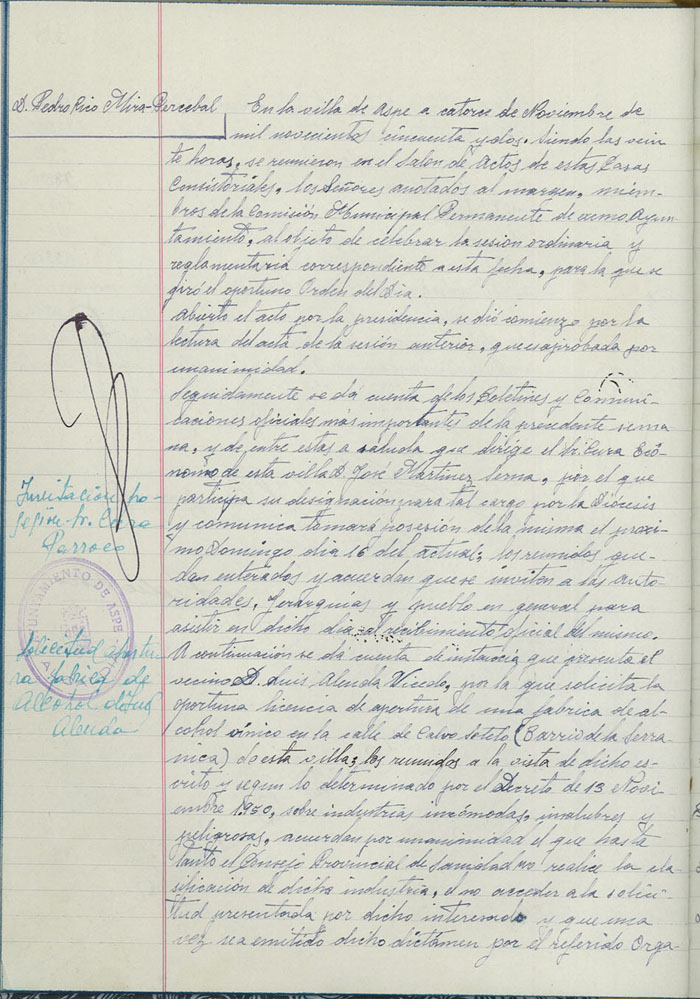 D. Pedro Rico Mira-Percebal
En la villa de Aspe a catorce de Noviembre de
mil novecientos cincuenta y dos. Siendo las vein
te horas, se reunieron en el Salon de Actos de estas Casas
Consistoriales, los Señores anotados al margen, miem-
bros de la Comisión Municipal Permanente de Ayun-
tamiento, al objeto de celebrar la sesión ordinaria y
reglamentaria correspondiente a esta fecha, para la que se
giró el oportuno Orden del Dia.
Abierto el acto por la presidencia, se dió comienzo por la
lectura del acta de la sesión anterior, que es aprobada por
unanimidad.
Seguidamente se dá cuenta de los Boletines y Comuni-
caciones oficiales más importantes de la precedente sema-
na, y de entre estas a saluda que dirige el Sr. Cura Ecó-
nomo de esta villa D. José Martinez Serna, por el que
participa su designación para tal cargo por la Diócesis
y comunica tomará posesión de la misma el proxi-
mo Domingo dia 16 del actual; los reunidos que-
dan enterados y acuerdan que se inviten a las auto-
ridades, Jerarquias y pueblo en general para
asistir en dicho dia al recibimiento oficial del mismo.
A continuación se dá cuenta de instancia que presenta el
vecino D. Luis Alenda Vicedo, por la que solicita la
oportuna licencia de apertura de una fabrica de al-
cohol vínico en la calle de Calvo Sotelo (Barrio de la Serra
nica) de esta villa; los reunidos a la vista de dicho es-
crito y segun lo determinado por el Decreto de 13 Novi-
embre 1.950, sobre industrias incómodas, insalubres y
peligrosas, acuerdan por unanimidad el que hasta
tanto el Consejo Provincial de Sanidad no realice la cla
sificación de dicha industria, el no acceder a la solici-
tud presentada por dicho interesado y que una
vez sea emitido dicho dictámen por el referido Orga-
Invitación
Sr. Cura
Parroco
AYUNTAMIENTO DE ASPE
Solicitud apertu
ra fabrica de
Alcohol de Luis
Alenda